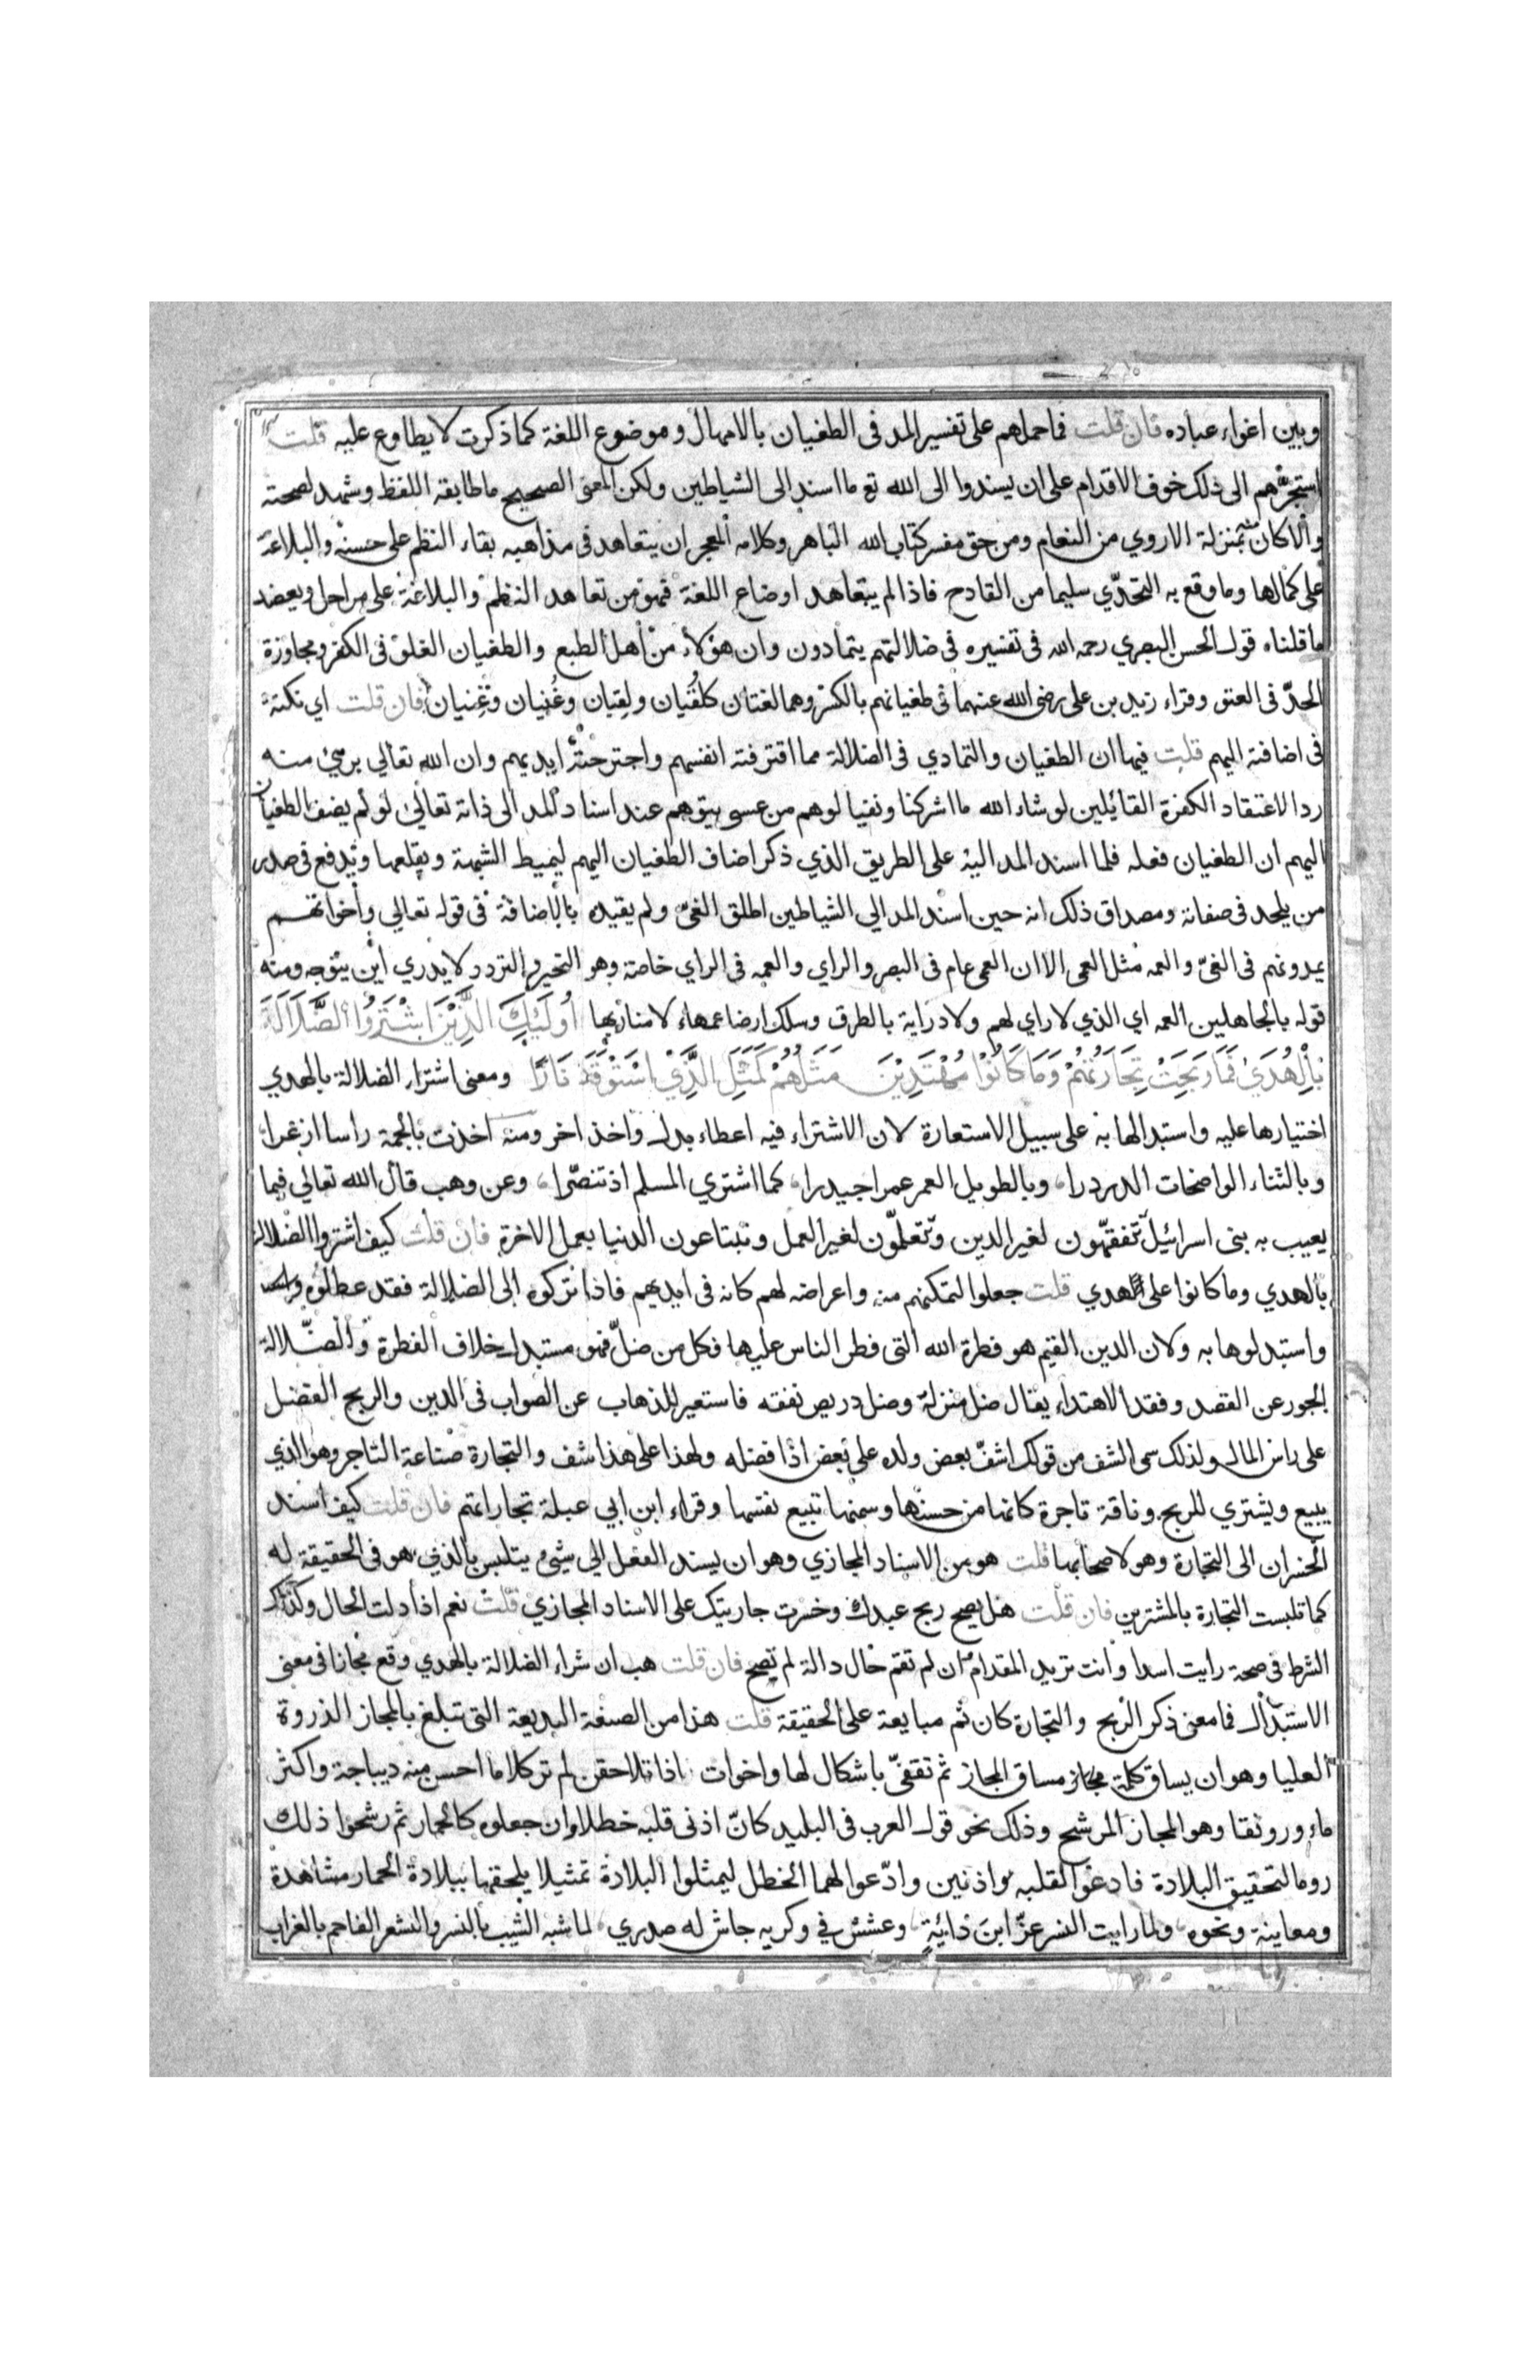 وبين اغواء عباده فان قلت فما حملهم على تفسير المد في الطغيان بالامهال وموضوع اللغة كما ذكرت لا يطاوع عليه قلت
استجرهم الى ذلك خوف الاقدام على ان يسندوا الى الله تع ما اسند الى الشياطين ولكن المعنى الصحيح ما طابقه اللفظ وشهد لصحته
والا كان بمنزلة الاروي من النعام ومن حق مفسر كتاب الله الباهر وكلامه المعجز ان يتعاهد في مذاهبه بقاء النظم على حسنه والبلاغة
على كمالها وما وقع به التحدّي سليما من القادح فاذا لم يتعاهد اوضاع اللغة فهو من تعاهد النظم والبلاغة على مراحل ويعضد
ما قلناه قول الحسن البصري رحمه الله في تفسيره في ضلالتهم يتمادون وان هؤلاء من أهل الطبع والطغيان الغلو في الكفر ومجاوزة
الحدّ في العتو وقراء زيد بن على رضى الله عنهما في طغيانهم بالكسر وهما لغتان كلُقيان ولِقيان وغُنيان وغِنيان فان قلت اي نكتة
في اضافته اليهم قلت فيها ان الطغيان والتمادي في الضلالة مما اقترفته انفسهم واجترحته ايديهم وان الله تعالي بريء منه
ردا لاعتقاد الكفرة القائلين لو شاء الله ما اشركنا ونفيا لوهم من عسى يتوهم عند اسناد المد الى ذاته تعالى لو لم يضف الطغيان
اليهم ان الطغيان فعله فلما اسند المد اليه على الطريق الذي ذكر اضاف الطغيان اليهم ليميط الشبهة ويقلعها ويدفع في صدر
من يلحد في صفاته ومصداق ذلك انه حين اسند المد الي الشياطين اطلق الغيّ ولم يقيده بالاضافة في قوله تعالي واخوانهم
يمدونهم في الغيّ والعمه مثل العمى الا ان العمى عام في البصر والراي والعمه في الراي خاصة وهو التحير والتردد لا يدري أين يتوجه ومنه
قوله بالجاهلين العمه اي الذي لا راي لهم ولا دراية بالطرق وسلك ارضا عمهاء لا منار بها أُولَئِكَ الَّذِيْنَ اشْتَرَوُا الضَّلَالَةَ
بِالْهُدَىٰ فَمَا رَبِحَتْ تِجَارَتُهُمْ وَمَا كَانُوْا مُهْتَدِيْنَ مَثَلُهُمْ كَمَثَلِ الَّذِيْ اسْتَوْقَدَ نَارًا ومعنى اشتراء الضلالة بالهدي
اختيارها عليه واستبدالها به على سبيل الاستعارة لان الاشتراء فيه اعطاء بدل واخذ اخر ومنه اخذت بالجمة راسا ازعرا
وبالثناء الواضحات الدردرا وبالطويل العمر عمرا جيدرا كما اشتري المسلم اذ تنصّرا وعن وهب قال الله تعالي فيما
يعيب به بني اسرائيل تتفقهّون لغير الدين وتتعلمّون لغير العمل وتبتاعون الدنيا بعمل الاخرة فان قلت كيف اشتروا الضلالة
بالهدي وما كانوا على الهدي قلت جعلوا لتمكنهم منه واعراضه لهم كانه في ايديهم فاذا تركوه الى الضلالة فقد عطلوه
واستبدلوها به ولان الدين القيم هو فطرة الله التي فطر الناس عليها فكل من ضلّ فهو مستبدل خلاف الفطرة والضّلالة
الجور عن القصد وفقد الاهتداء يقال ضل منزله وضل دريص نفقه فاستعير للذهاب عن الصواب في الدين والربح الفضل
على راس المال ولذلك سمى الشف من قولك اشفّ بعض ولده على بعض اذا فضله ولهذا على هذا شف والتجارة صناعة التاجر وهو الذي
يبيع ويشتري للربح وناقة تاجرة كانها من حسنها وسمنها تبيع نفسها وقراء ابن ابي عبلة تجاراتهم فان قلت كيف اسند
الخسران الى التجارة وهو لاصحابها قلت هو من الاسناد المجازي وهو ان يسند الفعل الي شيئ يتلبس بالذي هو في الحقيقة له
كما تلبست التجارة بالمشترين فان قلت هل يصح ربح عبدك وخسرت جاريتك على الاسناد المجازي قلت نعم اذا دلت الحال وكذلك
الشرط في صحة رايت اسدا وانت تريد المقدام ان لم تقم حال دالة لم تصح فان قلت هب ان شراء الضلالة بالهدي وقع مجازا في معنى
الاستبدال فما معنى ذكر الربح والتجارة كان ثم مبايعة على الحقيقة قلت هذا من الصنعة البديعة التي تبلغ بالمجاز الذروة
العليا وهو ان يساق كلمة مجاز مساق المجاز ثم تقفىّ باشكال لها واخوات اذا تلاحقن لم تر كلاما احسن منه ديباجة واكثر
ماء ورونقا وهو المجاز المرشح وذلك نحو قول العرب في البليد كانّ اذنى قلبه خطلاوان جعلوه كالحمار ثم رشحوا ذلك
روما لتحقيق البلادة فادعوا لقلبه اذنين وادّعوا لهما الخطل ليمثلوا البلادة تمثيلا يلحقها ببلادة الحمار مشاهدة
ومعاينة ونحوه ولما رايت النسر عزّ ابن دَائيةٍ وعشش في وكريه جاش له صدري لما شبه الشيب بالنسر والشعر الفاحم بالغراب